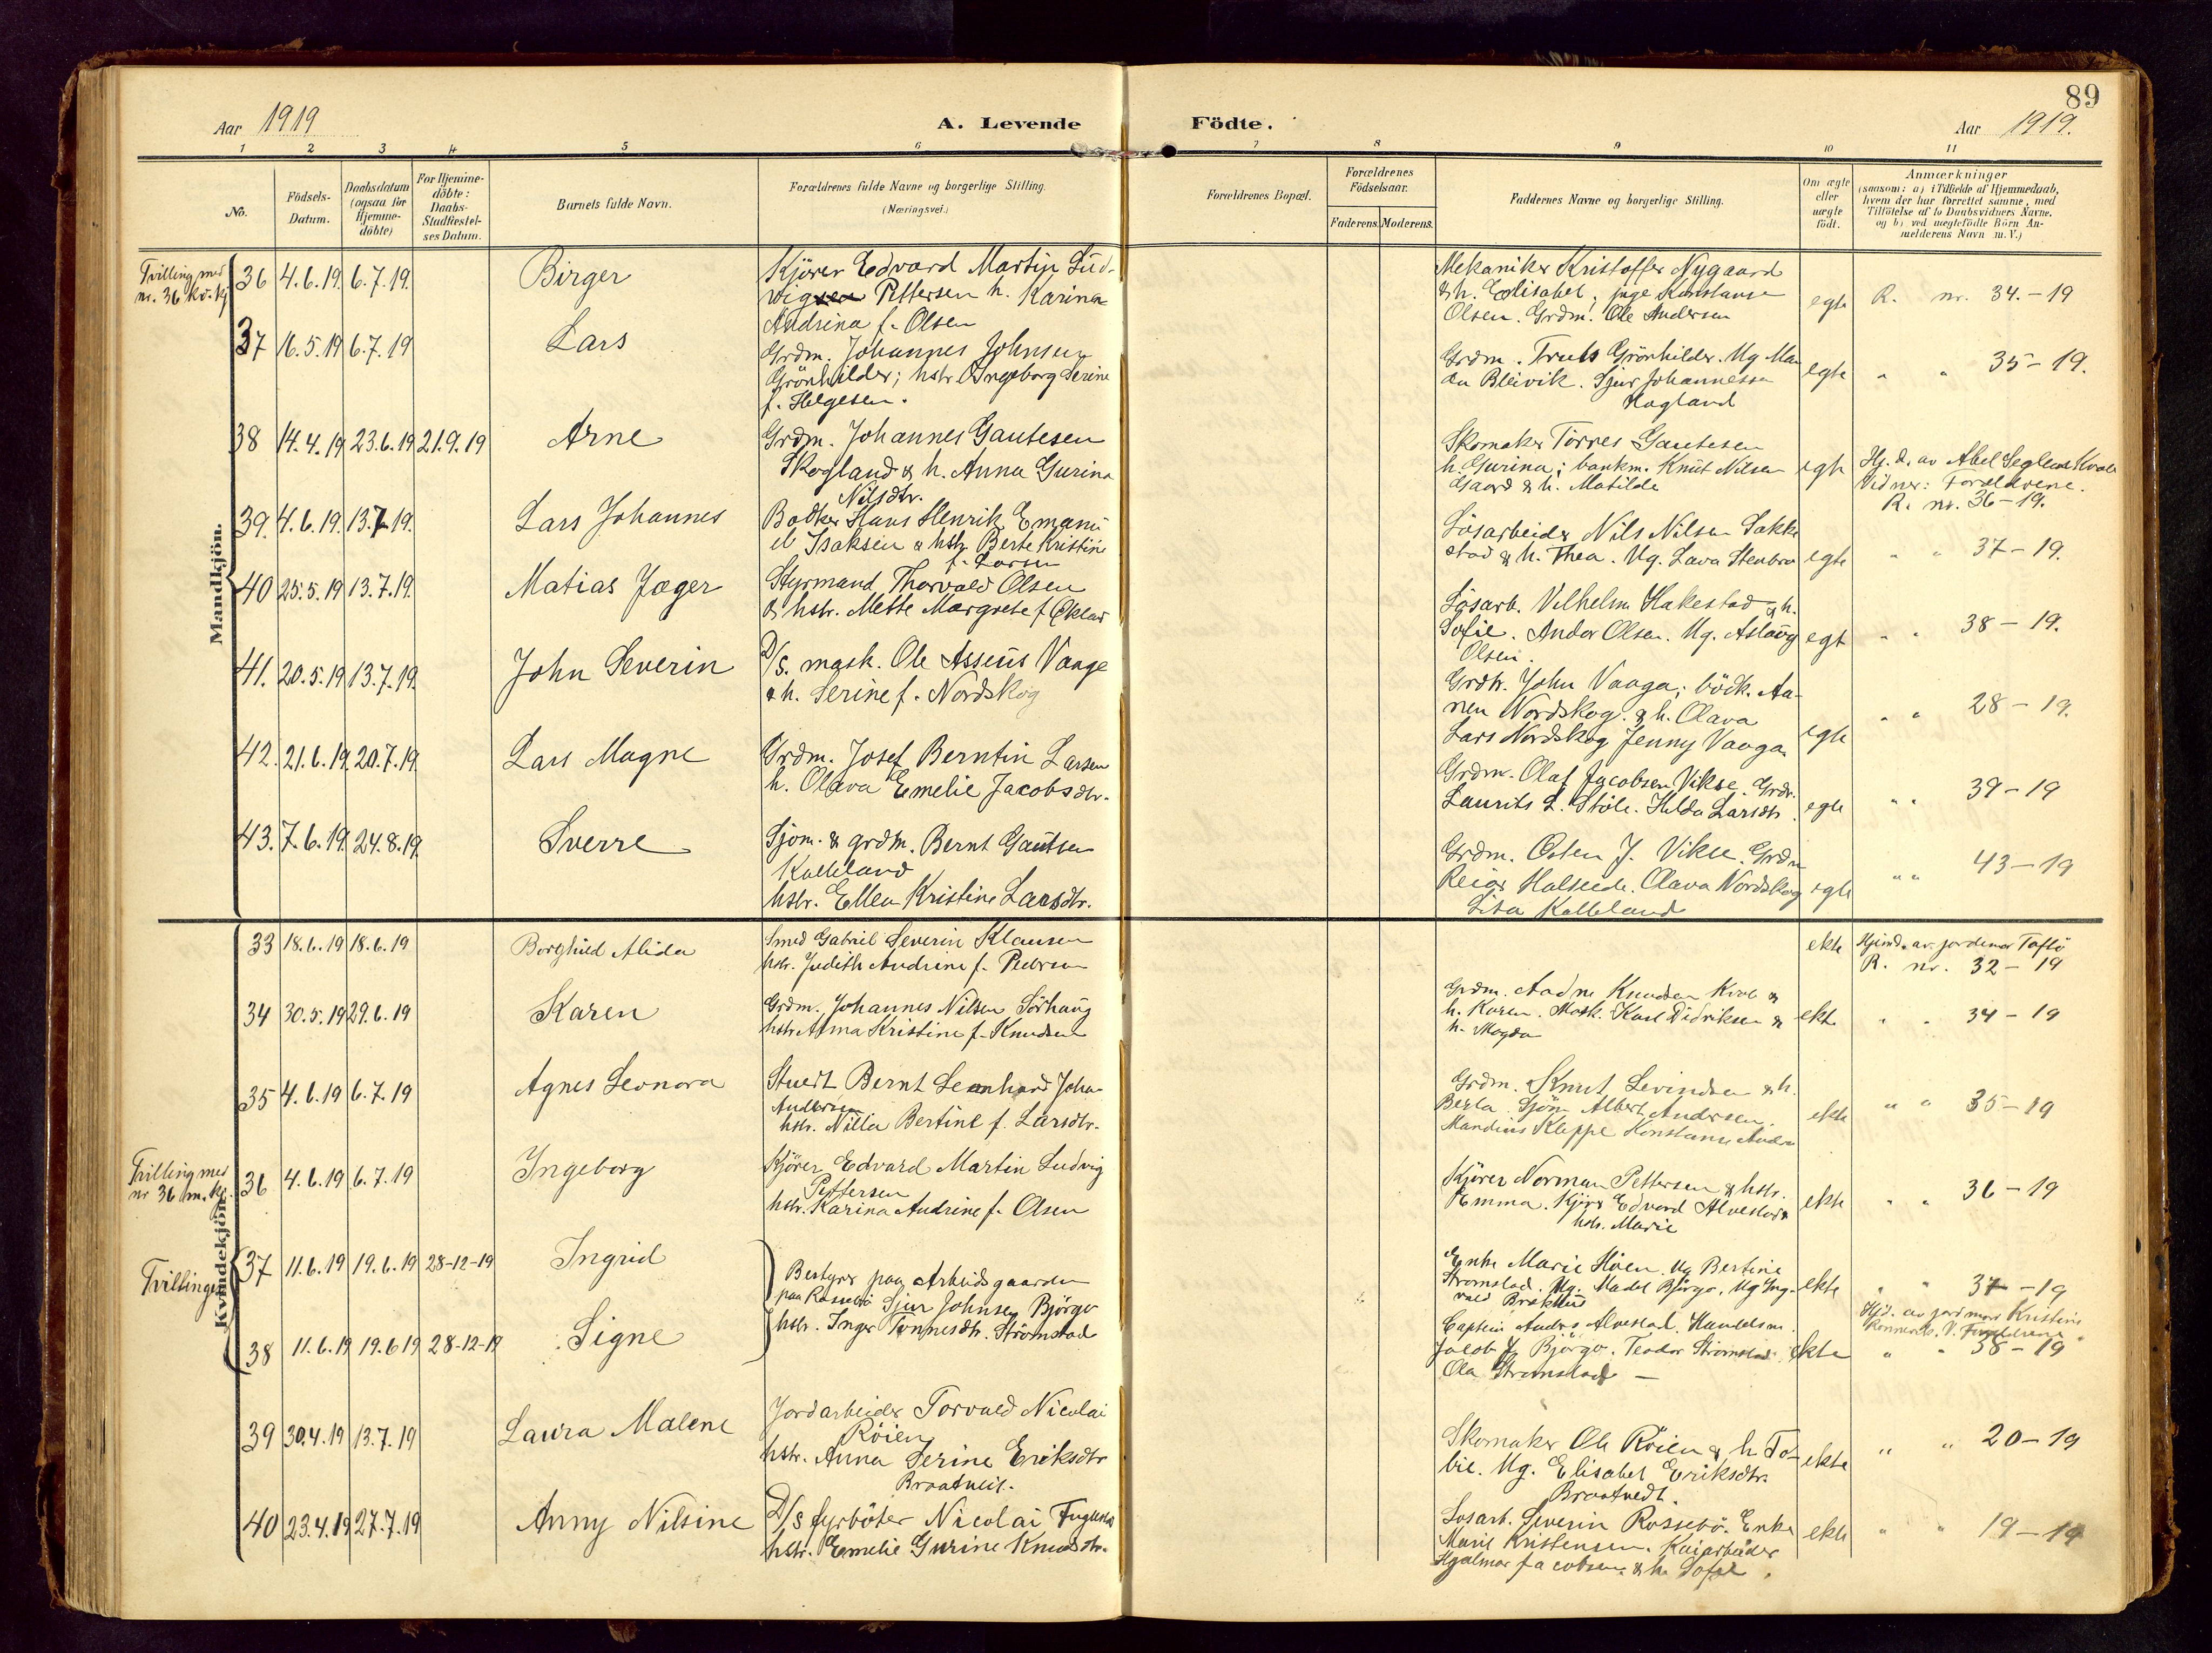 89
Aar 1919
A. Levende Födte.
Aar 1919.
1 2 3 4 5 6 7 8 9 10 11
No.
Födsels-Datum.
Daabsdatum (ogsaa for Hjemme-döbte)
For Hjemme-döbte: Daabs-Stadfæstel-ses Datum.
Barnets fulde Navn.
Forældrenes fulde Navne og borgerlige Stilling.
(Næringsvei.)
Forældrenes Bopæl.
Forældrenes Födselsaar.
Faderens. Moderens.
Faddernes Navne og borgerlige Stilling.
Om ægte eller uægte födt.
Anmærkninger
(saasom: a) i Tilfælde af Hjemmedaab,
hvem der har forrettet samme, med
Tilföielse af to Daabsvidners Navne.
og b) ved uægtefödte Börn An-
melderens Navn m. V.)
Mandkjön.
Tvilling med
nr. 36 kv. kj
36 4.6.19. 6.7.19. Birger
Kjörer Edvard Martin Lud-
vig Pettersen h. Karina
Andrina f. Olsen
Mekaniker Kristoffer Nygaard
& h. Elisabet; pige Konstanse
Olsen. Grdm. Ole Andersen
egte R. nr. 34.-19
37 16.5.19 6.7.19 Lars
Grdm. Johannes Johnsen
Grönhilder; hstr. Ingeborg Serine
f. Helgesen.
Grdm. Truls Grönhilder. Ug. Man
da Bleivik. Sjur Johannessen
Hogland
egte " " 35-19.
38 14.4.19 23.6.19 21.9.19 Arne
Grdm. Johannes Gautesen
Skogland & h. Anna Gurina
Nilsdtr.
Skomaker Torres Gautesen
h. Gurina; bankm. Knut Nilsen
Gaard & h. Matilde
egte Hj. d. av Abel Seglem Kvale
Vidner: Foreldrene.
R. nr. 36-19.
39. 4.6.19. 13.7.19. Lars Johannes
Bödker Hans Henrik Emanu
el Isaksen & hstr. Berte Kristine
f. Larsen
Lösarbeider Nils Nilsen Sakke
stad & h. Thea. Ug. Lava Stenbro
egte " " 37-19.
40 25.5.19 13.7.19. Matias Jæger
Styrmand Thorvald Olsen
& hstr. Mette Margrete f. Økland
Lösarb. Vilhelm Hakestad & h.
Sofie. Andor Olsen. Ug. Aslaug
Olsen.
egt " " 38-19.
41. 20.5.19 13.7.19. John Severin
D/s. mask. Ole Asseus Vaage
& h. Serine f. Nordskog
Grdbr. John Vaaga; bödk. Aa-
nen Nordskog. & h. Olava
Lars Nordskog Jenny Vaaga
egte " " 28-19.
42. 21.6.19. 20.7.19. Lars Magne
Grdm. Josef Berntin Larsen
h. Olava Emelie Jacobsdtr.
Grdm. Olaf Jacobsen Vikse. Grdr.
Laurits L. Stöle. Hulda Larsdtr.
egte " " 39-19
43. 7.6.19. 24.8.19. Sverre
Sjom. & grdm. Bernt Gautsen
Kalleland
hstr. Ellen Kristine Larsdtr.
Grdm. Osten J. Vikse. Grdm
Reiar Halseide. Olava Nordskog
Lisa Kalleland
egte " " 43-19
Kvindekjön.
33 18.6.19 18.6.19 Borghild Alida
Smed Gabriel Severin Klausen
hstr. Judith Andrine f. Pedersen
ekte Hjemd. av. jordemor Toftö
R. nr. 32-19
34 30.5.19 29.6.19 Karen
Grdm. Johannes Nilsen Sörhaug
hstr. Anna Kristine f. Knudsen
Grdm. Aadne Knudsen Kvale &
h. Karen. Mask. Karl Didriksen &
h. Magda
ekte " " 34-19
35 4.6.19 6.7.19 Agnes Leonora
Stuert Bernt Leonhard Johan
Andersen
hstr. Nilla Bertine f. Larsdtr.
Grdm. Knut Levindsen & h.
Berta. Sjöm. Albert Andersen.
Mandius Kleppe Konstanse Andre
ekte " " 35-19
Tvilling med
nr 36 m. kj.
36 4.6.19 6.7.19 Ingeborg
Kjörer Edvard Martin Ludvig
Pettersen
hstr. Karina Andrine f. Olsen
Kjörer Norman Pettersen & hstr.
Emma. Kjörer Edvard Alvestad &
hstr. Marie
ekte " " 36-19
Tvillinger
37 11.6.19 19.6.19 28-12-19 Ingrid
Bestyrer paa Arbeidsgaarden
paa Rossebö Sjur Johnsen Björgo
hstr. Inger Tönnesdtr. Strömstad
Enke Marie Höien. Ug. Bertine
Strömstad. Ug. Madel Björgo. Ug. Ing-
vald Brekhus
ekte " " 37-19
38 11.6.19 19.6.19 28-12-19 Signe
Captein Anders Alvestad. Handelsm.
Jacob J. Björgo. Teodor Strömstad
Ola Strömstad -
ekte Hjd. av jordmor Kristine
V. Foreldrene
" " 38-19
39 30.4.19 13.7.19 Laura Malene
Jordarbeider Torvald Nicolai
Röien
hstr. Anna Serine Eriksdtr
Braatveit.
Skomaker Ole Röien & h. To-
bie. Ug. Elisabet Eriksdtr.
Braatvedt.
ekte " " 20-19
40 23.4.19 27.7.19 Anny Nilsine
D/s fyrböter Nicolai Fuglestad
hstr. Emelie Gurine Knudsdtr.
Losarb. Severin Rossebö. Enke
Marie Kristensen. Kaiarbeider
Hjalmar Jacobsen & h. Sofie.
ekte " " 19-19